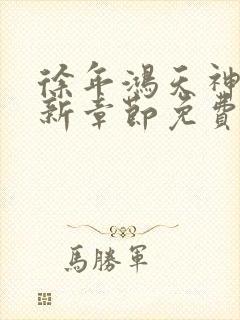 徐年鴻天神
新章節免費
馬勝軍